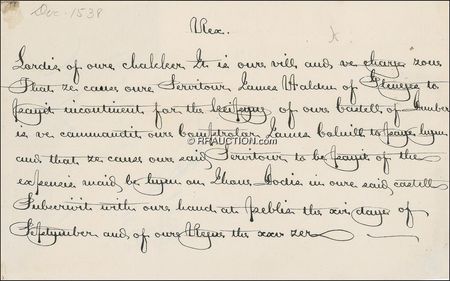 Dec. 1538
Rex.
Lordis of oure chakker It is oure will and we charge zou
That ze caus oure Servitour James Waldun of to
payit incontinent for the keiping of oure castell of
is we commandit our Comptrolar James Colvill to paye hyum
and that ze caus our said Servitour to be payit of the
expensis maid be hym on in oure said castell
Subscrivit with oure hand at peblis the xvi daye of
Septymber and of oure Regne the xxv zer
© RRAUCTION.COM